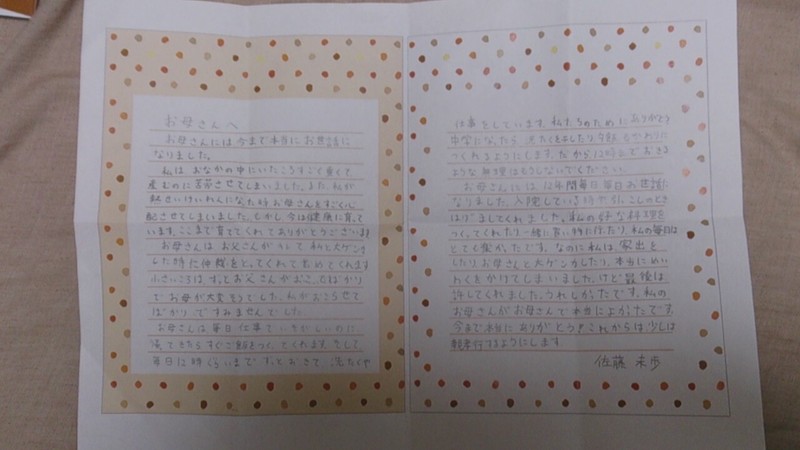 お母さんへ
お母さんには今まで本当にお世話に
なりました。
私はおなかの中にいたころすごく重くて、
産むのに苦労させてしまいました。また、私が
けいれんになった時お母さんをすごく心
配させてしまいました。しかし、今は健康に育って
います。ここまで育ててくれてありがとうございます
お母さんはお父さんが私と大ゲンカ
した時に仲裁をとってくれてとめてくれます
小さいころは、ずっとお父さんがおこったばかり
でお母が大変そうでした。私がおこらせて
ばかりですみませんでした。
お母さんは毎日仕事でいそがしいのに
帰てきたらすぐご飯をつくってくれます。そして、
毎日12時ぐらいまでずっとおきて洗たくや
仕事をしています。私たちのためにありがとう
中学になったら洗たくをしたり夕飯もかわりに
つくれるようにします。だから12時までおきる
ような無理はもうしないでください。
お母さんには、12年間毎日毎日お世話に
なりました。入院していた時や
はげましてくれました。私の好きな料理を
つくってくれたり一緒に買い物に行ったり、私の毎日は
とても楽かったです。なのに私は、家出を
したりお母さんと大ゲンカしたり、本当にめい
わくをかけてしまいました。けど最後は
許してくれました。うれしかったです。私の
お母さんがお母さんで本当によかったです。
今まで本当にありがとう!これからは、少しは
親孝行するようにします。
佐藤 未歩